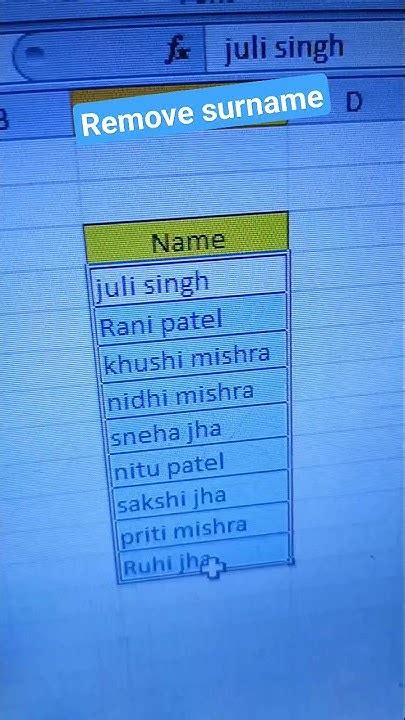 fx juli singh
B D
Remove surname
Name
juli singh
Rani patel
khushi mishra
nidhi mishra
sneha jha
nitu patel
sakshi jha
priti mishra
Ruhi jha